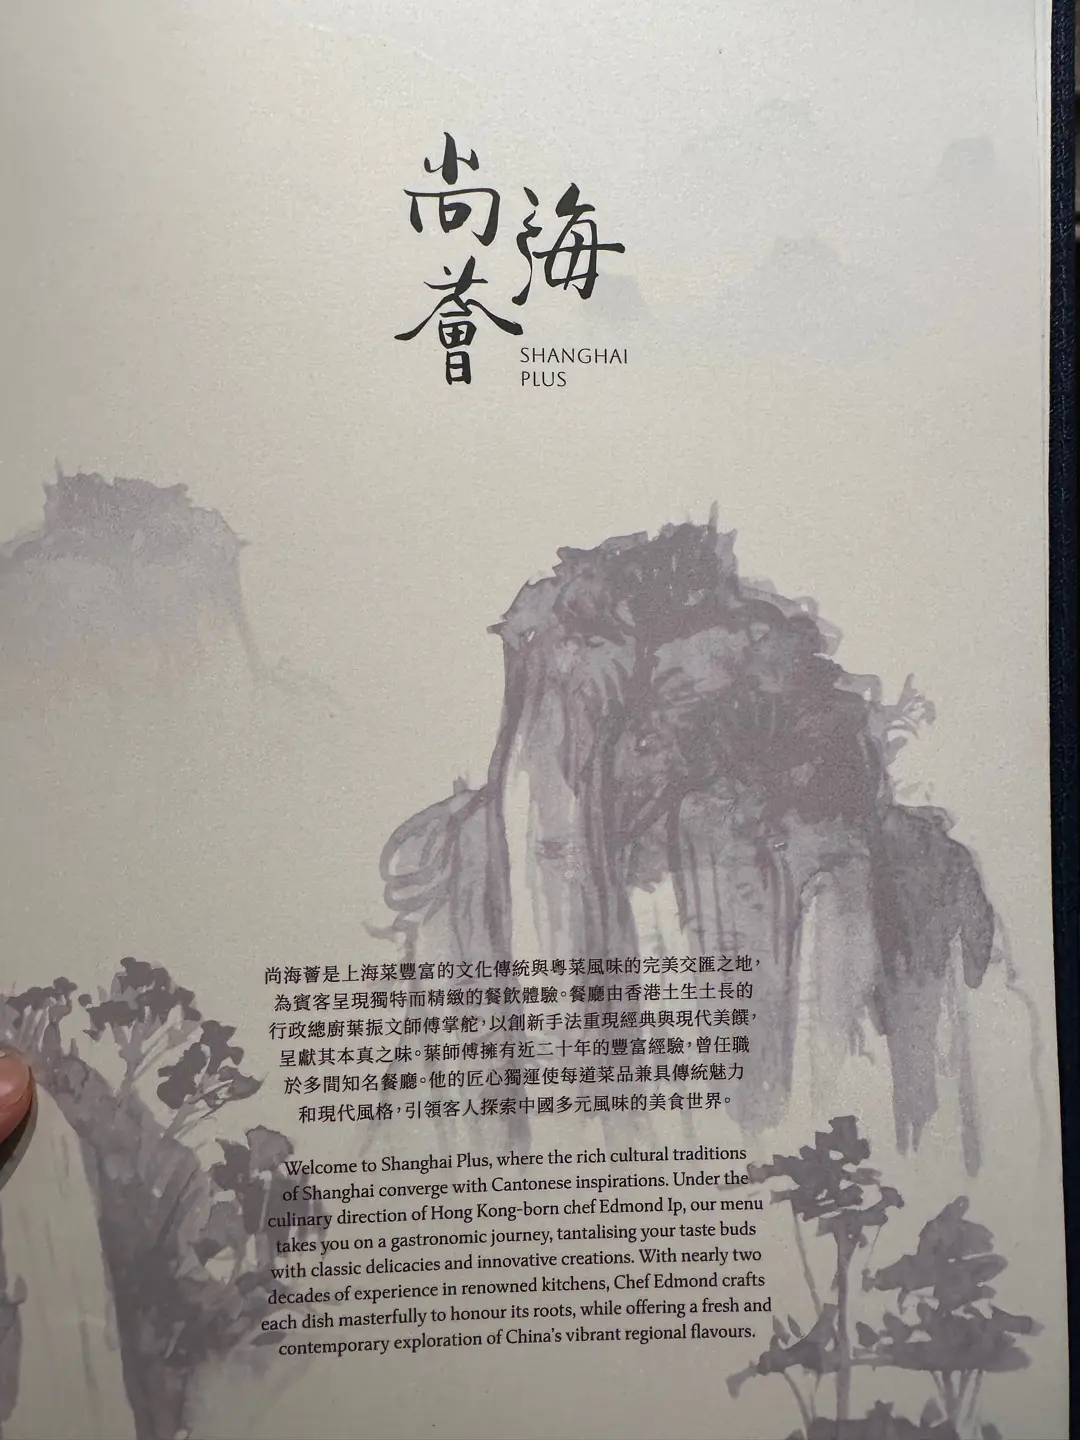 尚海薈
SHANGHAI
PLUS
尚海薈是上海菜豐富的文化傳統與粵菜風味的完美交匯之地，
為賓客呈現獨特而精緻的餐飲體驗。餐廳由香港土生土長的
行政總廚葉振文師傅掌舵，以創新手法重現經典與現代美饌，
呈獻其本真之味。葉師傅擁有近二十年的豐富經驗，曾任職
於多間知名餐廳。他的匠心獨運使每道菜品兼具傳統魅力
和現代風格，引領客人探索中國多元風味的美食世界。
Welcome to Shanghai Plus, where the rich cultural traditions
of Shanghai converge with Cantonese inspirations. Under the
culinary direction of Hong Kong-born chef Edmond Ip, our menu
takes you on a gastronomic journey, tantalising your taste buds
with classic delicacies and innovative creations. With nearly two
decades of experience in renowned kitchens, Chef Edmond crafts
each dish masterfully to honour its roots, while offering a fresh and
contemporary exploration of China's vibrant regional flavours.